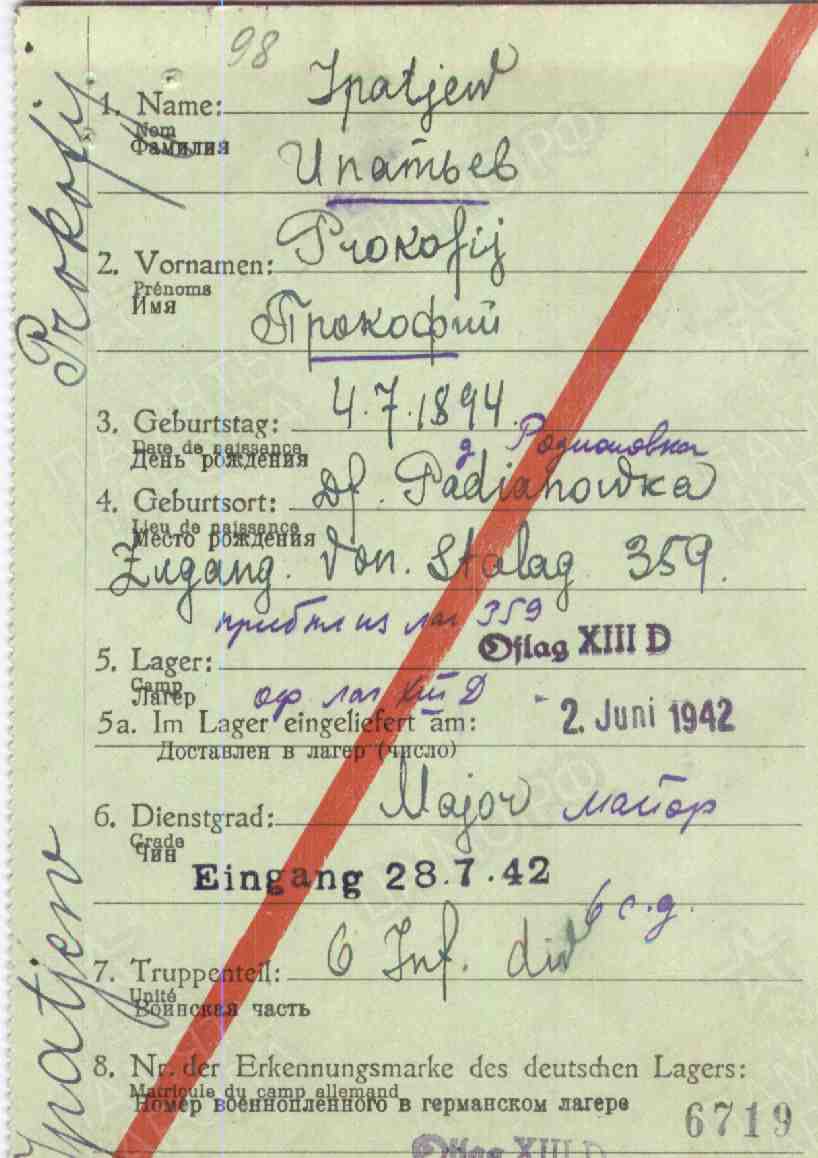 98
1. Name: Ipatjew
Nom
Фамилия
Ипатьев
2. Vornamen: Prokofij
Prénoms
Имя
Прокофий
3. Geburtstag: 4.7.1894.
Date de naissance
День рождения
д Родионовка
4. Geburtsort: Df. Padianowka
Lieu de naissance
Место рождения
Zugang. von. Stalag 359.
прибыл из лаг 359
Oflag XIII D
5. Lager:
Camp
Лагерь
оф лаг XIII Д
5a. Im Lager eingeliefert am: 2. Juni 1942
Доставлен в лагер (число)
6. Dienstgrad: Major майор
Grade
Чин
Eingang 28.7.42
6 с.д.
7. Truppenteil: 6 Inf. div
Unité
Воинская часть
8. Nr. der Erkennungsmarke des deutschen Lagers:
Matricule du camp allemand
Номер военнопленного в германском лагере
6719
Oflag XIII D
Ipatjew Prokofij